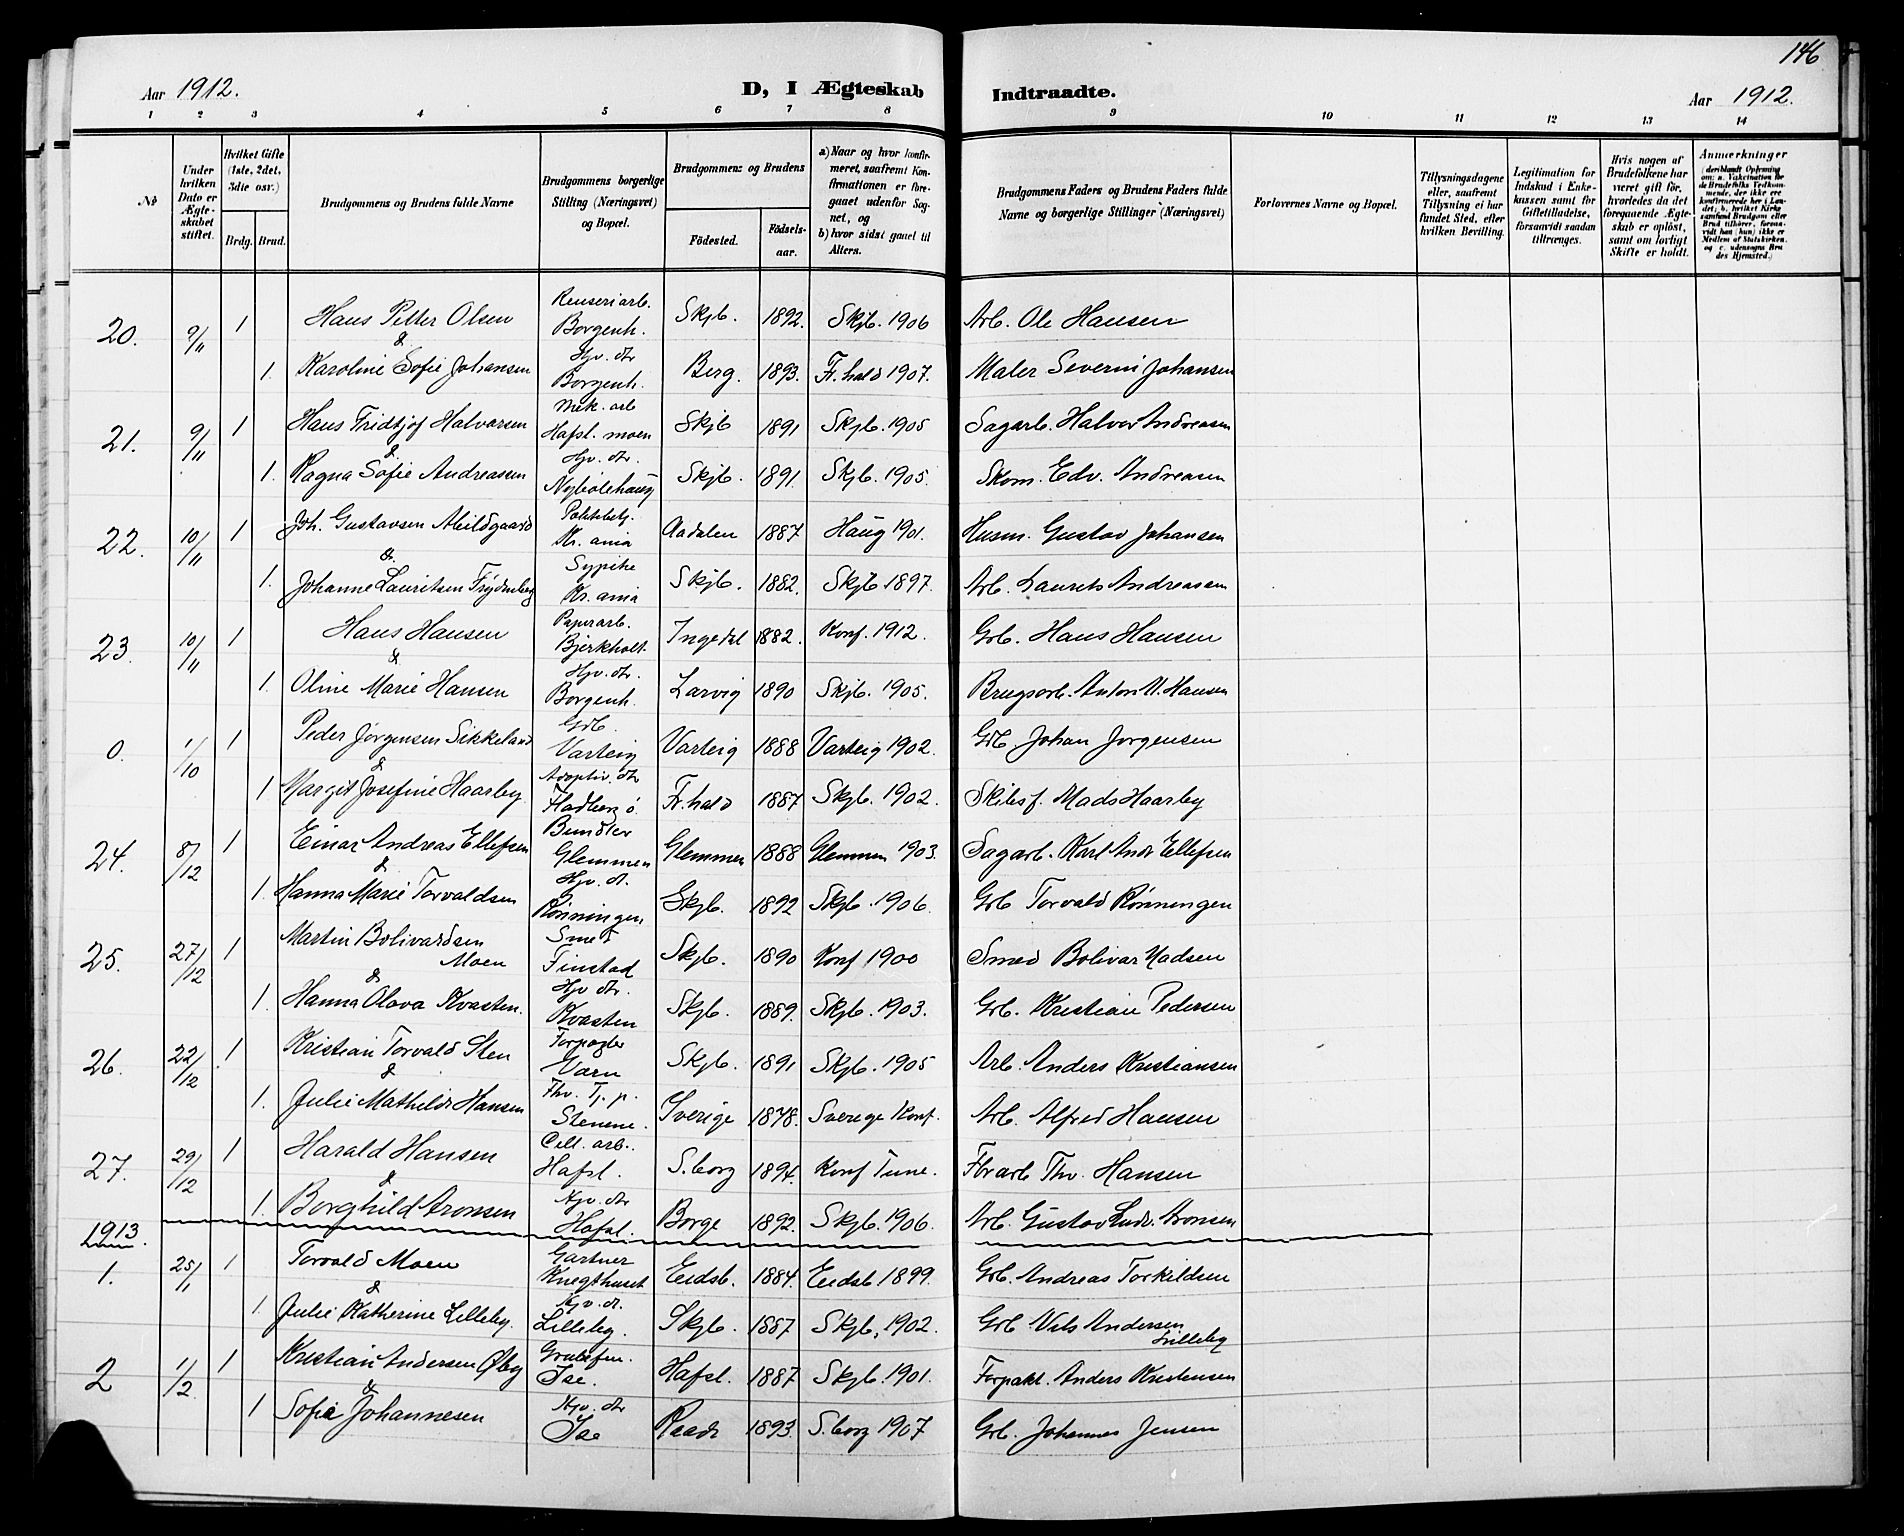 146
Aar 1912. D, I Ægteskab Indtraadte. Aar 1912.
1 2 3 4 5 6 7 8 9 10 11 12 13 14
№
Under hvilken Dato er Ægteskabet stiftet.
Hvilket Gifte (1ste, 2det, 3die osv.)
Brdg. Brud.
Brudgommens og Brudens fulde Navne
Brudgommens borgerlige Stilling (Næringsvei) og Bopæl.
Brudgommens og Brudens
Födested. Födselsaar.
a) Naar og hvor konfirmeret, saafremt Konfirmationen er foregaaet udenfor Sognet, og
b) hvor sidst gaaet til Alters.
Brudgommens Faders og Brudens Faders fulde Navne og borgerlige Stillinger (Næringsvei)
Forlovernes Navne og Bopæl.
Tillysningsdagene eller, saafremt Tillysning ei har fundet Sted, efter hvilken Bevilling.
Legitimation for Indskud i Enkekassen samt for Giftetilladelse, forsaavidt saadan tiltrænges.
Hvis nogen af Brudefolkene har været gift för, hvorledes da det foregaaende Ægteskab er oplöst, samt om lovligt Skifte er holdt.
Anmerkninger
20. 9/11 1 Hans Petter Olsen Renseriarb. Borgenh. Skjb. 1892. Skjb. 1906 Arb. Ole Hansen
&
1. Karoline Sofie Johansen Hjv. dtr Borgenh. Berg. 1893. Fr.hald 1907. Maler Severin Johansen
21. 9/11 1 Hans Fridtjof Halvorsen Mek. arb Hafsl. moen Skjb 1891 Skjb. 1905 Sagarb. Halvor Andreasen
&
1. Ragna Sofie Andreassen Hjv. dtr. Nybölehaug Skjb. 1891. Skjb. 1905. Skom. Edv. Andreasen
22. 10/11 1 Joh. Gustavsen Abildgaard Politibetj. Kr. ania Aadalen 1887 Haug 1901. Husm. Gustav Johansen
&
1. Johanne Lauritsen Frydenberg Sypike Kr. ania Skjb. 1882. Skjb 1897. Arb. Laurits Andreassen
23. 10/11 1 Hans Hansen Papirarb. Bjerkholt Ingedal 1882. Konf. 1912. Grb. Hans Hansen
&
1. Oline Marie Hansen Hjv. dtr. Borgenh. Larvig 1890 Skjb. 1905. Brugsarb. Anton M. Hansen
0. 1/10 1 Peder Jörgensen Sikkeland Grb. Varteig Varteig 1888 Varteig 1902. Grb Johan Jorgensen
&
1 Margit Josefine Haarby Adoptiv. dtr Fladberg ö Fr.hald 1887 Skjb. 1902. Skibsf. Mads Haarby
24. 8/12 1 Einar Andreas Ellefsen Bundter Glemmen Glemmen 1888 Glemmen 1903. Sagarb. Karl Andr Ellefsen
&
1. Hanna Marie Torvaldsen Hjv. d. Rönningen Skjb. 1892 Skjb. 1906. Grb Torvald Rönningen
25. 27/12 1 Martin Bolivardsen Moen Smed Finstad Skjb. 1890 Konf 1900 Smed Bolivar Madsen
&
1. Hanna Olava Kvasten. Hjv dtr. Kvasten Skjb. 1889. Skjb. 1903. Grb. Kristian Pedersen
26. 22/12 1 Kristian Torvald Sten Forpagter Varn Skjb. 1891 Skjb. 1905 Arb. Anders Kristiansen
&
1. Julie Mathilde Hansen Fhv. Tj. p. Stenene. Sverige 1878. Sverige Konf. Arb. Alfred Hansen
27. 29/12 1 Harald Hansen Cell. arb. Hafsl. S.borg 1894. Konf Tune. Thv. Hansen
&
1. Borghild Aronsen Hjv. dtr Hafsl. Borge 1892. Skjb. 1906. Arb. Gustav Ludv. Aronsen
1913.
1. 25/1 1 Torvald Moen Gartner Knegthuset Eidsb. 1884. Eidsb 1899. Grb. Andreas Torkildsen
&
1. Julie Katherine Lilleby. Hjv. d. Lilleby. Skjb. 1887 Skjb. 1902. Grb. Nils Andersen Lilleby
2 1/2 1 Kristian Andersen Öby Ise. Hafsl. 1887 Skjb. 1901. Forpakt. Anders Kristensen
&
1 Sofie Johannesen Hjv. dtr Ise Raade 1893. S.borg 1907 Grb. Johannes Jensen